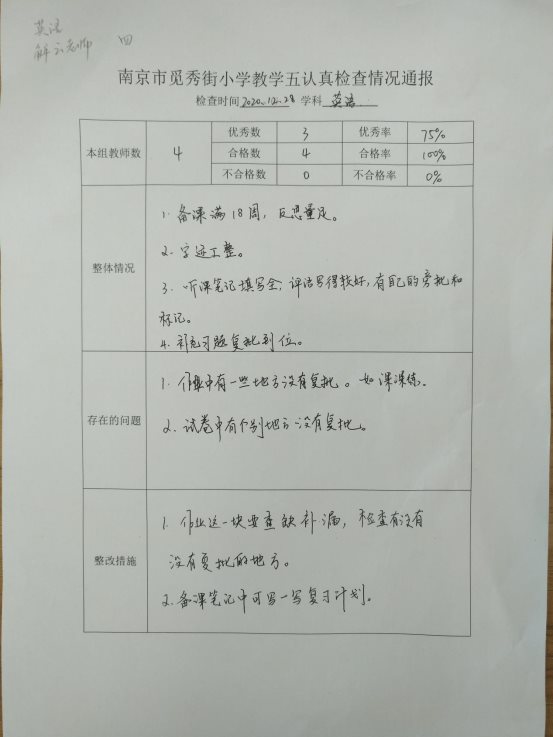 英语
解云老师 四
南京市觅秀街小学教学五认真检查情况通报
检查时间 2020.12.28 学科 英语
本组教师数 4 优秀数 3 优秀率 75%
合格数 4 合格率 100%
不合格数 0 不合格率 0%
整体情况
1. 备课满18周，反思量足。
2. 字迹工整。
3. 听课笔记填写全；评语写得较好，有自己的旁批和
标记。
4. 补充习题复批到位。
存在的问题
1. 作业中有一些地方没有复批。如课课练.
2. 试卷中有个别地方没有复批。
整改措施
1. 作业这一块要查缺补漏，检查有没有
没有复批的地方。
2. 备课笔记中可写一写复习计划。